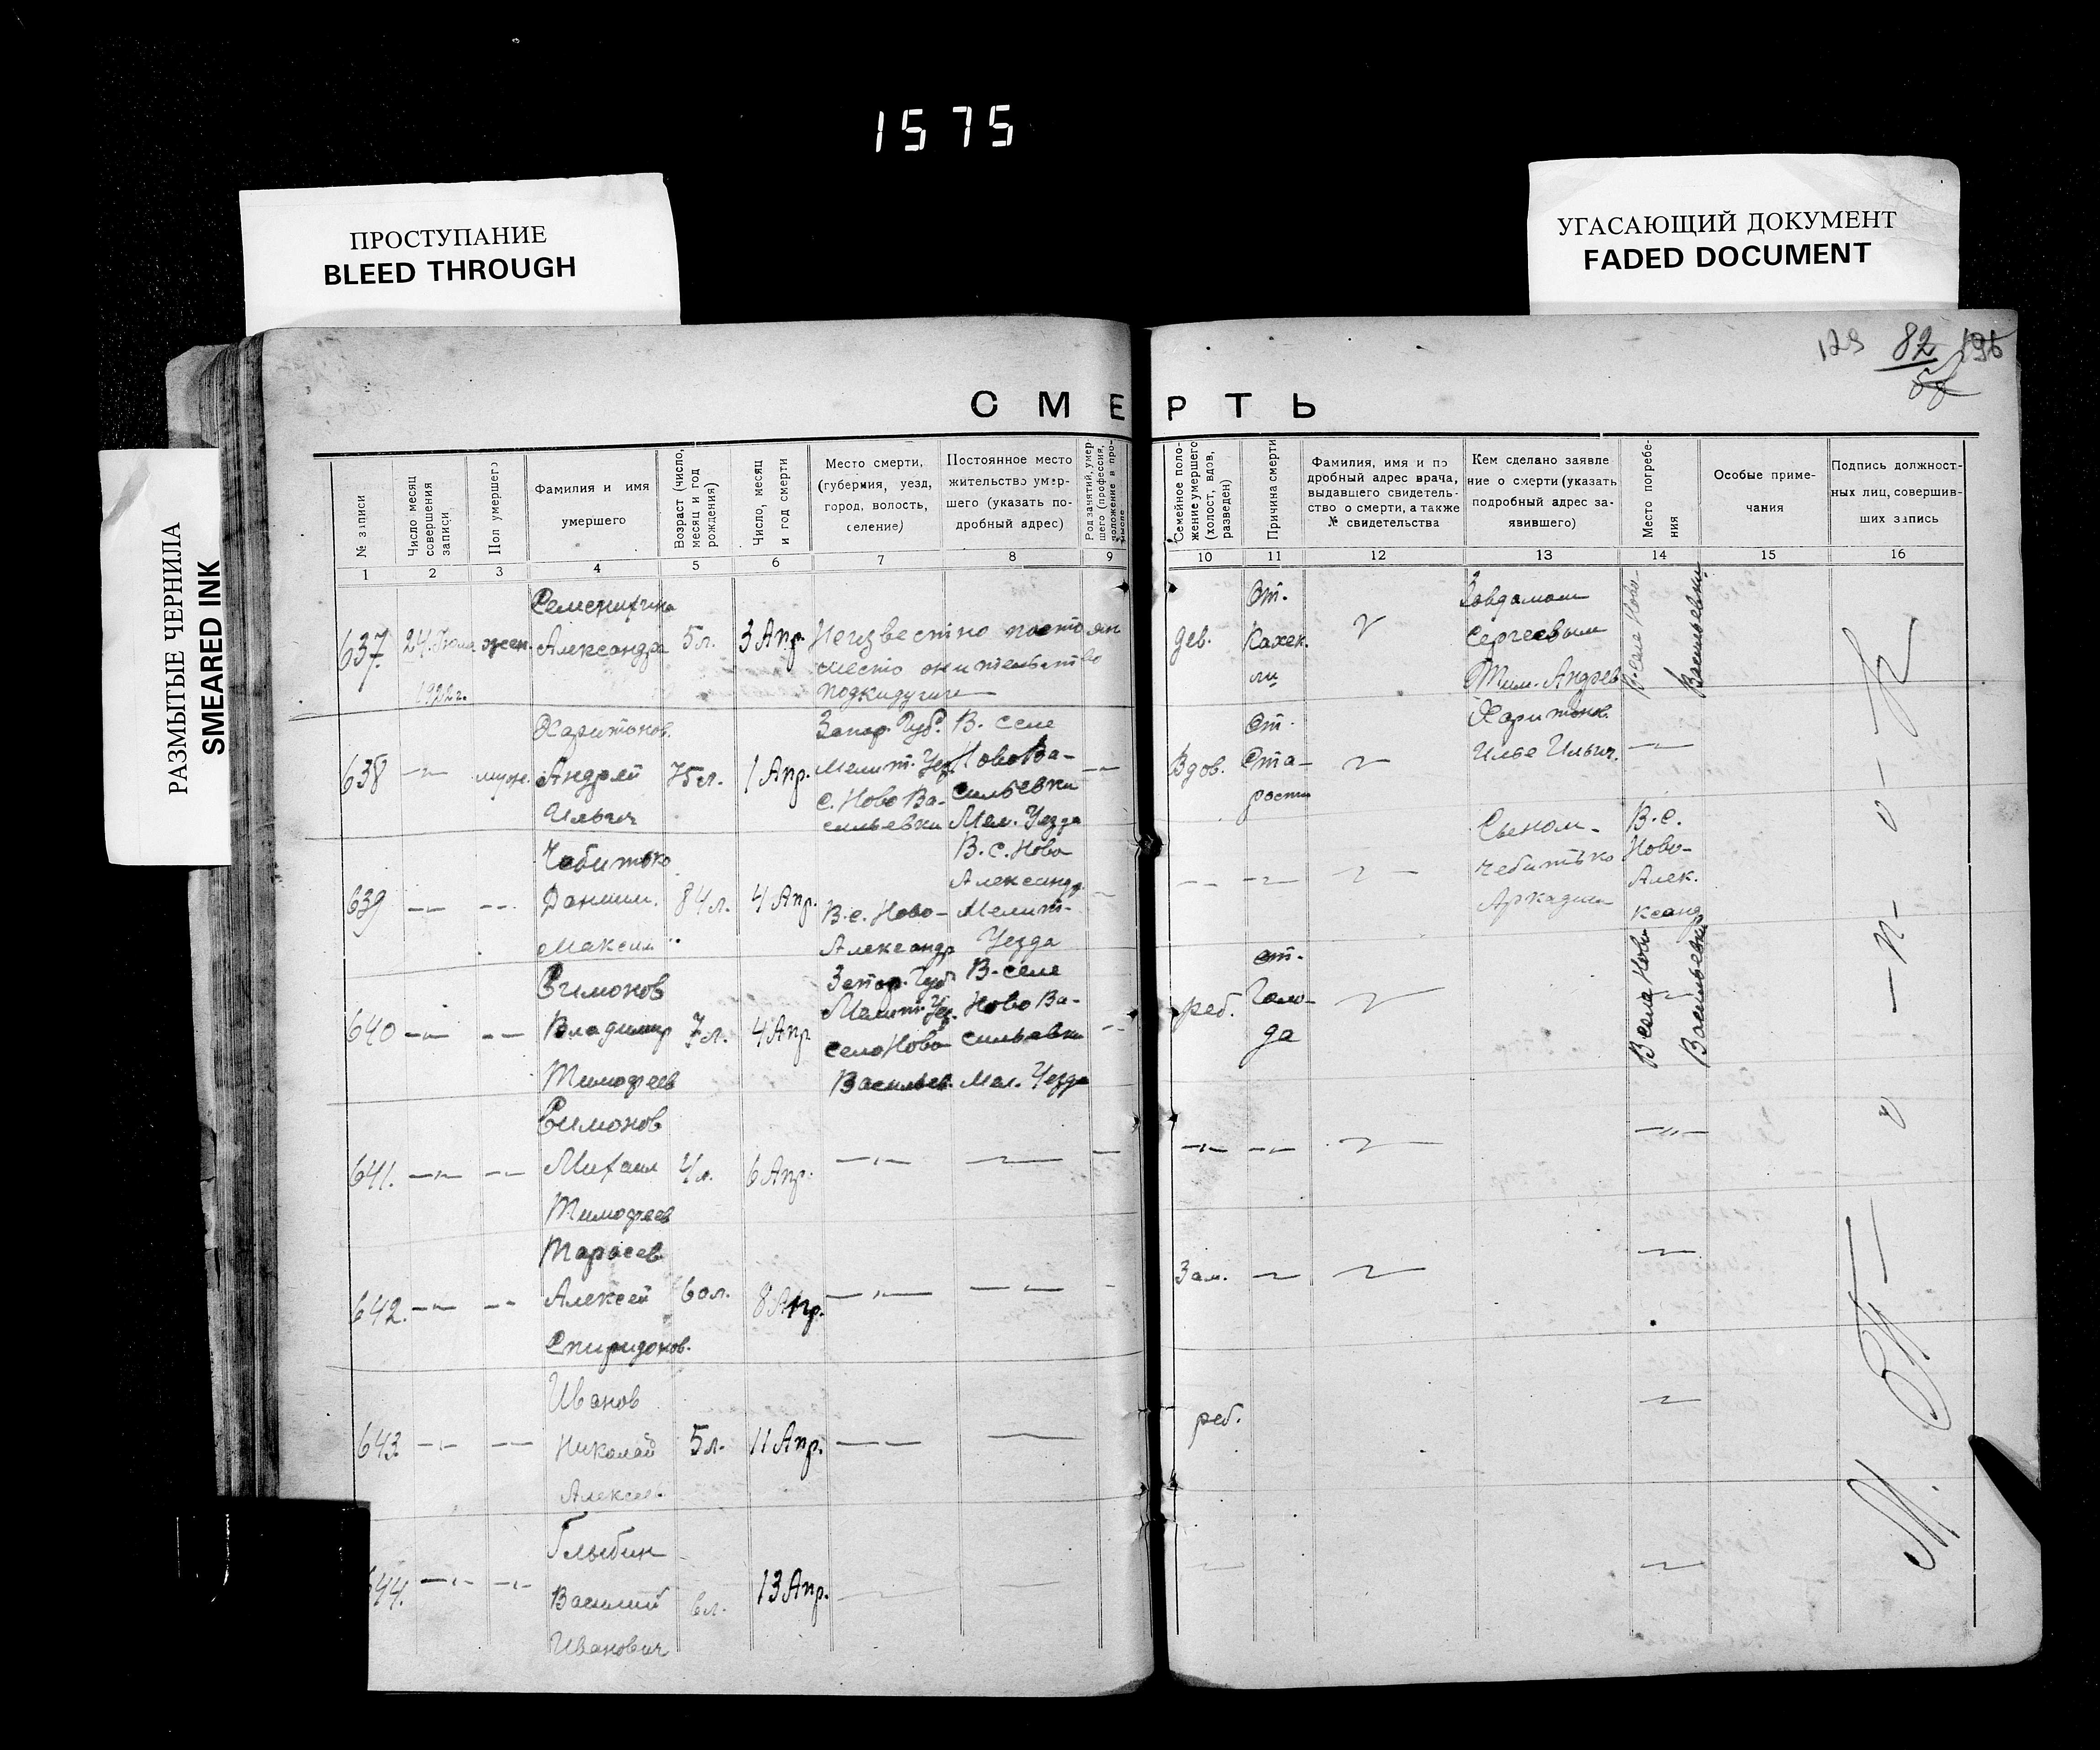 1575
ПРОСТУПАНИЕ
BLEED THROUGH
УГАСАЮЩИЙ ДОКУМЕНТ
FADED DOCUMENT
РАЗМЫТЫЕ ЧЕРНИЛА
SMEARED INK
82
СМЕРТЬ
№ записи
Число месяц совершения записи
Пол умершего
Фамилия и имя
умершего
Возраст (число, месяц и год рождения)
Число, месяц и год смерти
Место смерти,
(губерния, уезд,
город, волость,
селение)
Постоянное место
жительство умер-
шего (указать по-
дробный адрес)
Род занятий, умер-
шего (профессия,
положение в про-
Семейное поло-
жение умершего
(холост, вдов,
разведен)
Причина смерти
Фамилия, имя и по
дробный адрес врача,
выдавшего свидетель-
ство о смерти, а также
№ свидетельства
Кем сделано заявле
ние о смерти (указать
подробный адрес за-
явившего)
Место погребе-
ния
Особые приме-
чания
Подпись должност-
ных лиц, совершив-
ших запись
1 2 3 4 5 6 7 8 9 10 11 12 13 14 15 16
637. 1922г. жен. Александра 5л. 3 Апр. Неизвестно
место жительство
дев. От.
Сергеевым
Тим. Андрев
В селе Ново-
Васильевки
638 муж. Харитонов
Андрей
Ильич
75л. 1 Апр.
Запор. Губ.
Мелит. Уез.
С. Ново Ва-
сильевки
В. селе
Ново Ва-
сильевки
Мел. Уезда
Вдов. От.
Ста-
рости
Харитонов
Илье Ильич.
639 Чебитько
Даниил.
Максим
84л. 4 Апр.
В.с. Ново-
Александр
В.с. Ново
Александр
Мелит-
Уезда
Сыном-
Чебитько
Аркадий
В.с.
Ново-
Алек.
ксанд
640 Симонов
Владимир
Тимофеев
7л. 4 Апр.
Запор. Губ
Мелит. Уез.
село Ново
Васильев.
В. селе
Ново Ва-
сильевки
Мел. Уезда
реб. от-
Голо-
да
В села Ново
Васильевки
641. Симонов
Михаил
Тимофеев
4л. 6 Апр.
642. Тарасев
Алексей
Спиридонов.
60л. 8 Апр.
Зам.
643. Иванов
Николай
Алексеев
5л. 11 Апр.
реб.
44. Глыбин
Василий
Иванович
6л. 13 Апр.